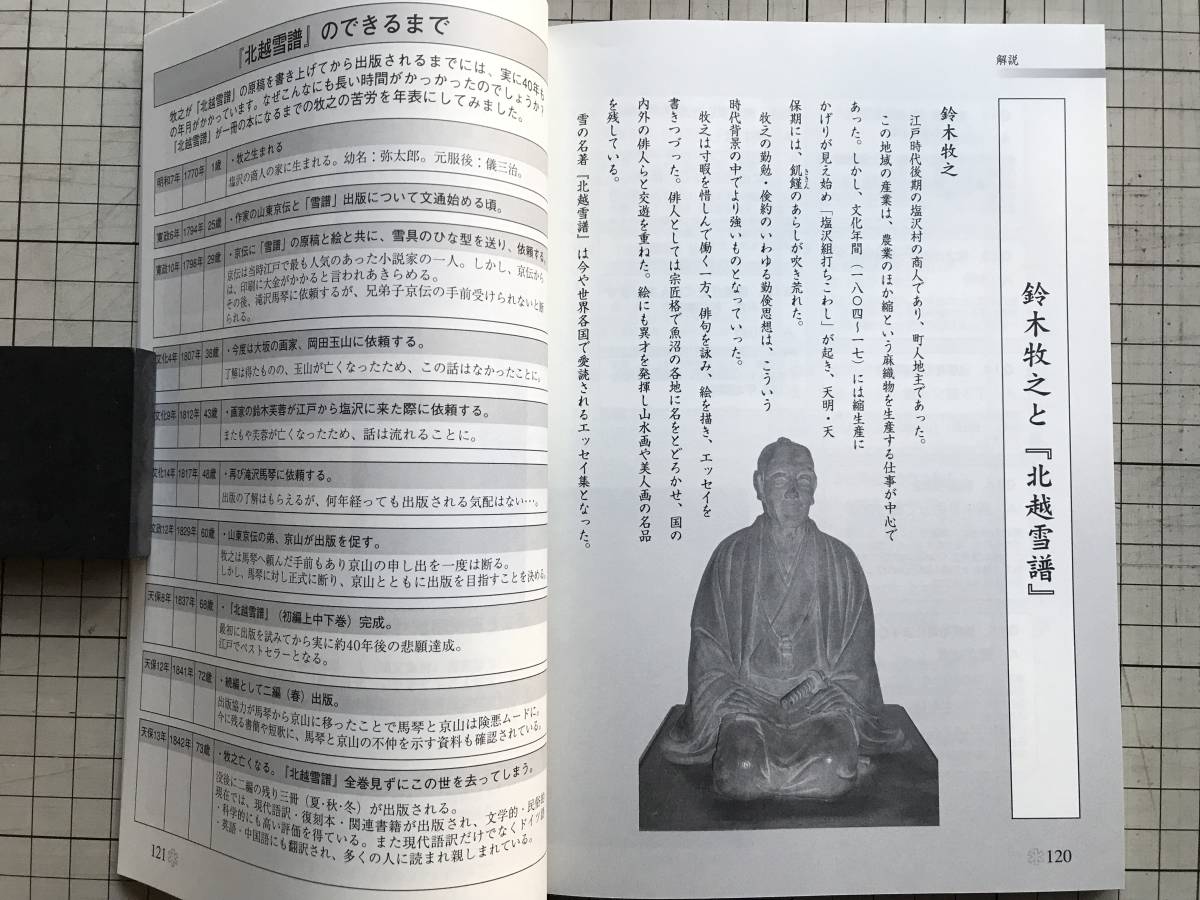 解説
鈴木牧之と『北越雪譜』
鈴木牧之
江戸時代後期の塩沢村の商人であり、町人地主であった。
この地域の産業は、農業のほか縮という麻織物を生産する仕事が中心で
あった。しかし、文化年間（一八〇四〜一七）には縮生産に
かげりが見え始め「塩沢組打ちこわし」が起き、天明・天
保期には、飢饉のあらしが吹き荒れた。
ききん
牧之の勤勉・倹約のいわゆる勤倹思想は、こういう
時代背景の中でより強いものとなっていった。
牧之は寸暇を惜しんで働く一方、俳句を詠み、絵を描き、エッセイを
書きつづった。俳人としては宗匠格で魚沼の各地に名をとどろかせ、国の
内外の俳人らと交遊を重ねた。絵にも異才を発揮し山水画や美人画の名品
を残している。
雪の名著『北越雪譜』は今や世界各国で愛読されるエッセイ集となった。
120
『北越雪譜』のできるまで
牧之が『北越雪譜』の原稿を書き上げてから出版されるまでには、実に40年も
の年月がかかっています。なぜこんなにも長い時間がかかったのでしょうか？
『北越雪譜』が一冊の本になるまでの牧之の苦労を年表にしてみました。
明和7年 1770年 1歳 ・牧之生まれる
塩沢の商人の家に生まれる。幼名：弥太郎。元服後：儀三治。
寛政6年 1794年 25歳 ・作家の山東京伝と「雪譜」出版について文通始める頃。
寛政10年 1798年 29歳 ・京伝に「雪譜」の原稿と絵と共に、雪具のひな型を送り、依頼する。
京伝は当時江戸で最も人気のあった小説家の一人。しかし、京伝から
は、印刷に大金がかかると言われあきらめる。
その後、滝沢馬琴に依頼するが、兄弟子京伝の手前受けられないと断
られる。
文化4年 1807年 38歳 ・今度は大坂の画家、岡田玉山に依頼する。
了解は得たものの、玉山が亡くなったため、この話はなかったことに。
文化9年 1812年 43歳 ・画家の鈴木芙蓉が江戸から塩沢に来た際に依頼する。
またもや芙蓉が亡くなったため、話は流れることに。
文化14年 1817年 48歳 ・再び滝沢馬琴に依頼する。
出版の了解はもらえるが、何年経っても出版される気配はない…。
文政12年 1829年 60歳 ・山東京伝の弟、京山が出版を促す。
牧之は馬琴へ頼んだ手前もあり京山の申し出を一度は断る。
しかし、馬琴に対し正式に断り、京山とともに出版を目指すことを決める。
天保8年 1837年 68歳 ・『北越雪譜』（初編上中下巻）完成。
最初に出版を試みてから実に約40年後の悲願達成。
江戸でベストセラーとなる。
天保12年 1841年 72歳 ・続編として二編（春）出版。
出版協力が馬琴から京山に移ったことで馬琴と京山は険悪ムードに。
今に残る書簡や短歌に、馬琴と京山の不仲を示す資料も確認されている。
天保13年 1842年 73歳 ・牧之亡くなる。『北越雪譜』全巻見ずにこの世を去ってしまう。
没後に二編の残り三冊（夏・秋・冬）が出版される。
現在では、現代語訳・復刻本・関連書籍が出版され、文学的・民俗的
・科学的にも高い評価を得ている。また現代語訳だけでなくドイツ語
・英語・中国語にも翻訳され、多くの人に読まれ親しまれている。
121